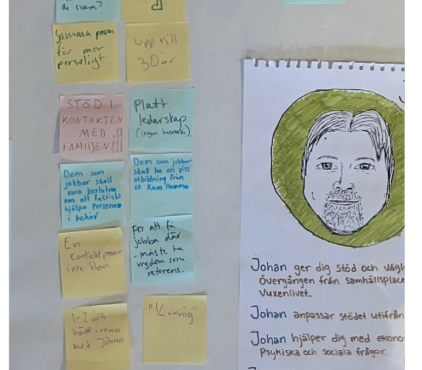 de svara?
Samma person
för mer
personligt
Upp till
30 år
STÖD I
KONTAKTEN
MED
FAMILJEN
Platt
ledarskap
(ingen hierarki)
Dem som
jobbar skall
vara beslutna
om att faktiskt
hjälpa personen
i behov
Dem som jobbar
skall ha en viss
utbildning från
ex
För att få
jobba där
- måste ha
ungdom som
referens.
En
kontaktperson
inte
1-2
med Johan
"Kunnig"
Johan ger dig stöd och vägl
Övergången från samhällsplace
Vuxenlivet.
Johan anpassar stödet utifrån
Johan hjälper dig med ekono
Psykiska och sociala frågor.